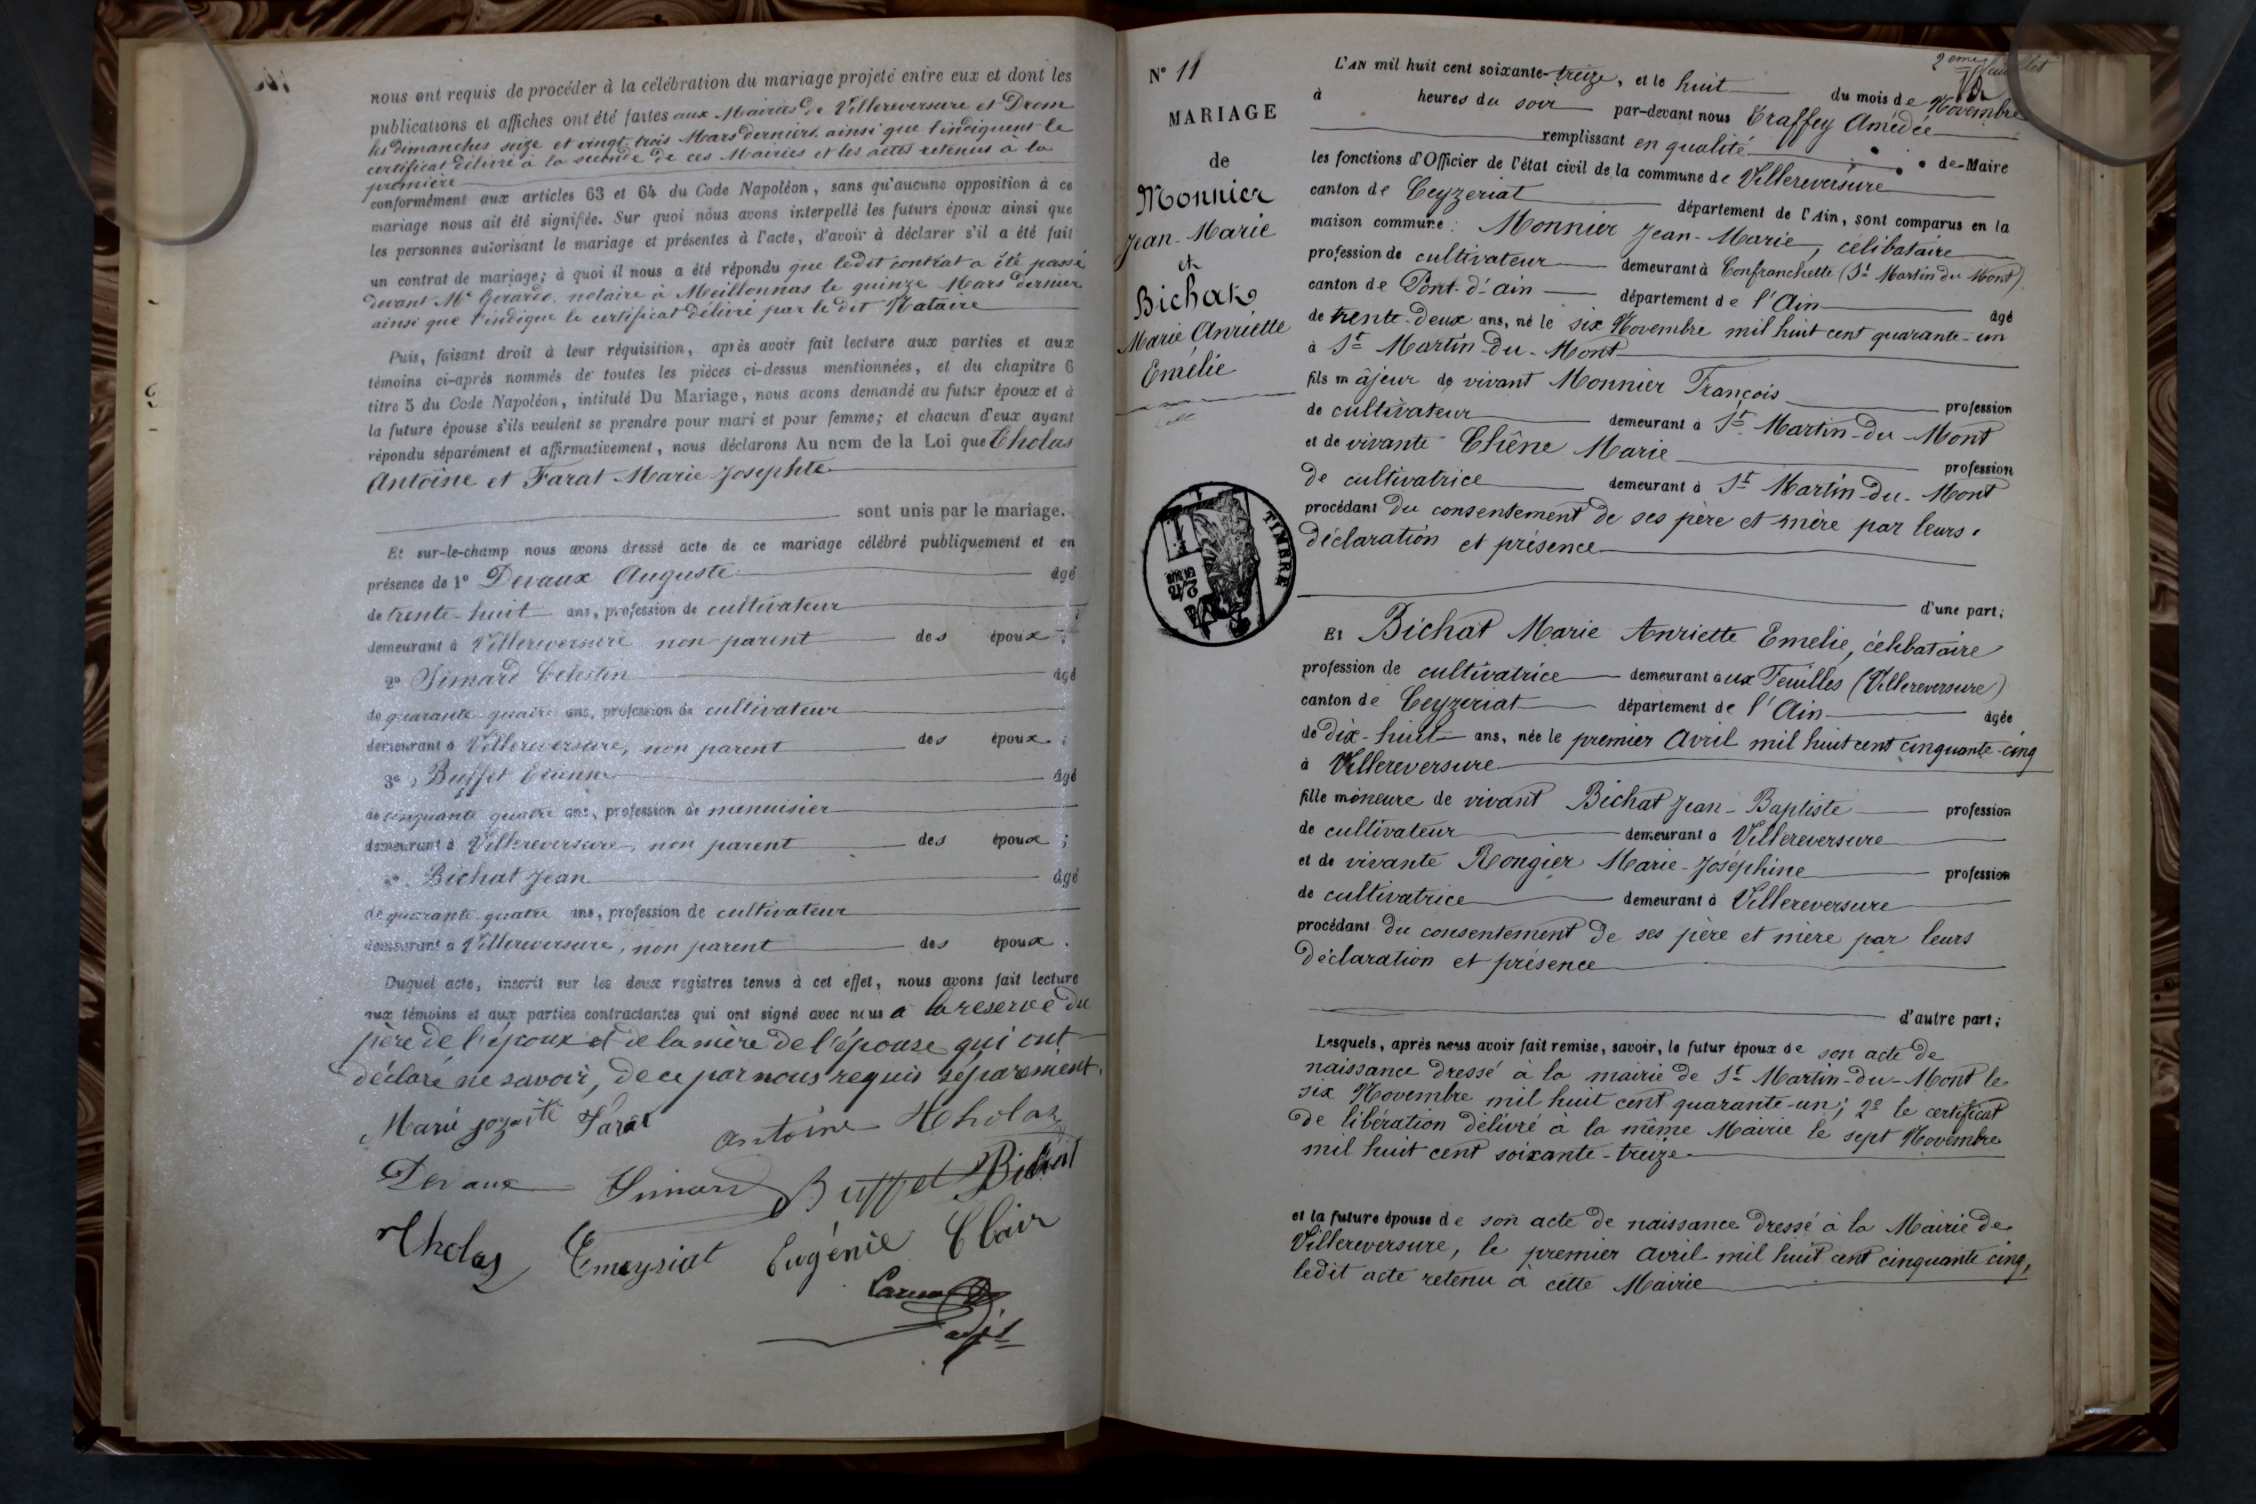 nous ont requis de procéder à la célébration du mariage projeté entre eux et dont les
publications et affiches ont été faites aux Mairies de Villereversure et Drom
les dimanches seize et vingt trois Mars derniers, ainsi que l'indiquent le
certificat délivré à la seconde de ces Mairies et les actes retenus à la
première
conformément aux articles 63 et 64 du Code Napoléon, sans qu'aucune opposition à ce
mariage nous ait été signifiée. Sur quoi nous avons interpellé les futurs époux ainsi que
les personnes autorisant le mariage et présentes à l'acte, d'avoir à déclarer s'il a été fait
un contrat de mariage; à quoi il nous a été répondu que ledit contrat a été passé
devant Me notaire à Meillonnas le quinze Mars dernier
ainsi que l'indique le certificat délivré par le dit Notaire
Puis, faisant droit à leur réquisition, après avoir fait lecture aux parties et aux
témoins ci-après nommés de toutes les pièces ci-dessus mentionnées, et du chapitre 6
titre 5 du Code Napoléon, intitulé Du Mariage, nous avons demandé au futur époux et à
la future épouse s'ils veulent se prendre pour mari et pour femme; et chacun d'eux ayant
répondu séparément et affirmativement, nous déclarons Au nom de la Loi que Cholas
Antoine et Farat Marie Josephte
sont unis par le mariage.
Et sur-le-champ nous avons dressé acte de ce mariage célébré publiquement et en
présence de 1° Devaux Auguste âgé
de trente-huit ans, profession de cultivateur
demeurant à Villereversure non parent des époux ;
2° Simard Célestin âgé
de quarante quatre ans, profession de cultivateur
demeurant à Villereversure, non parent des époux ;
3° Buffet Etienne âgé
de cinquante quatre ans, profession de menuisier
demeurant à Villereversure, non parent des époux ;
4° Bichat Jean âgé
de quarante quatre ans, profession de cultivateur
demeurant à Villereversure, non parent des époux .
Duquel acte, inscrit sur les deux registres tenus à cet effet, nous avons fait lecture
aux témoins et aux parties contractantes qui ont signé avec nous à la réserve du
père de l'époux et de la mère de l'épouse qui ont
déclaré ne savoir, de ce par nous requis séparément.
Marie Farat antoine Cholas
Devaux Simard Buffet Bichat
Cholas Emeysiat Eugénie Clair
adjt
2ème
N° 11
MARIAGE
de
Monnier
Jean-Marie
et
Bichat
Marie Anriette
Emélie
TIMBRE
L'AN mil huit cent soixante-treize, et le huit du mois de Novembre
à heures du soir par-devant nous Traffey Amédée
remplissant en qualité de Maire
les fonctions d'Officier de l'état civil de la commune de Villereversure
canton de Ceyzeriat département de l'Ain, sont comparus en la
maison commune : Monnier Jean-Marie, célibataire
profession de cultivateur demeurant à Confranchette (St Martin du Mont)
canton de Pont-d'ain département de l'Ain âgé
de trente-deux ans, né le six Novembre mil huit cent quarante-un
à St Martin-du-Mont
fils majeur de vivant Monnier François profession
de cultivateur demeurant à St Martin-du-Mont
et de vivante Chêne Marie profession
de cultivatrice demeurant à St Martin-du-Mont
procédant du consentement de ses père et mère par leurs
déclaration et présence
d'une part;
Et Bichat Marie Anriette Emelie, célibataire
profession de cultivatrice demeurant aux Feuilles (Villereversure)
canton de Ceyzeriat département de l'Ain âgée
de dix-huit ans, née le premier Avril mil huit cent cinquante-cinq
à Villereversure
fille mineure de vivant Bichat Jean-Baptiste profession
de cultivateur demeurant à Villereversure
et de vivante Rongier Marie-Joséphine profession
de cultivatrice demeurant à Villereversure
procédant du consentement de ses père et mère par leurs
déclaration et présence
d'autre part;
Lesquels, après nous avoir fait remise, savoir, le futur époux de son acte de
naissance dressé à la mairie de St Martin-du-Mont le
six Novembre mil huit cent quarante-un; 2° le certificat
de libération délivré à la même Mairie le sept Novembre
mil huit cent soixante-treize
et la future épouse de son acte de naissance dressé à la Mairie de
Villereversure, le premier avril mil huit cent cinquante cinq,
ledit acte retenu à cette Mairie